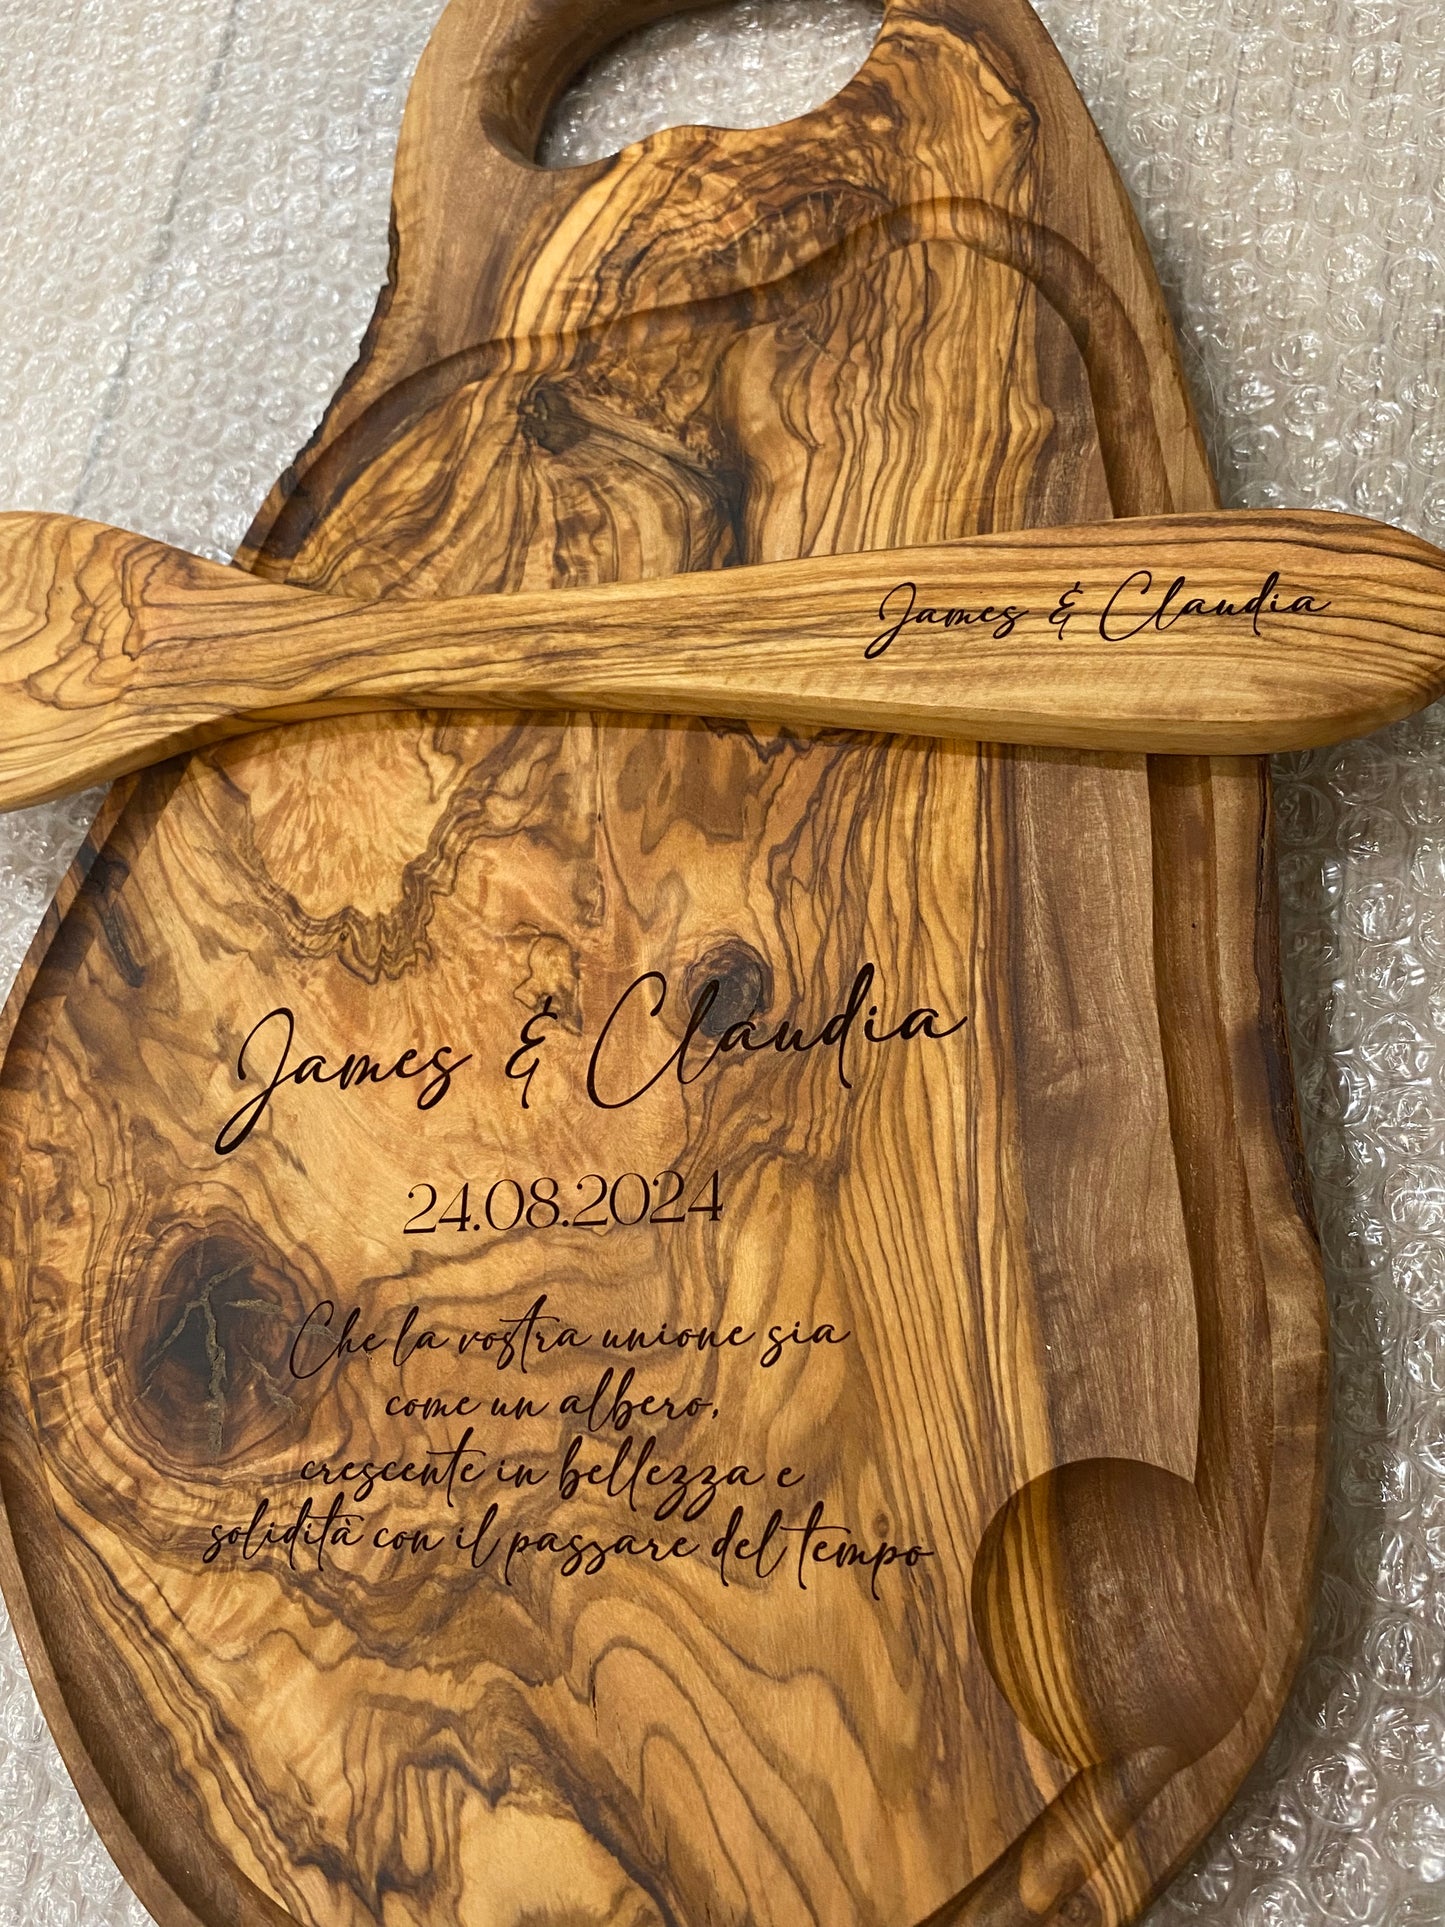 James & Claudia
James & Claudia
24.08.2024
Che la vostra unione sia
come un albero,
crescente in bellezza e
solidità con il passare del tempo